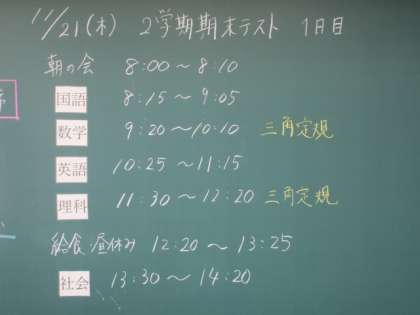 11/21(木) 2学期期末テスト 1日目
朝の会 8:00～8:10
国語 8:15～9:05
数学 9:20～10:10 三角定規
英語 10:25～11:15
理科 11:30～12:20 三角定規
給食・昼休み 12:20～13:25
社会 13:30～14:20